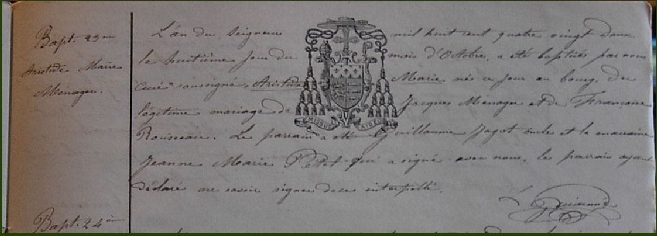 Bapt. 23me
Aristide Marie
Ménager.
L'an du Seigneur mil huit cent quatre vingt douze
le huitième jour du mois d'Octobre, a été baptisé par nous
curé soussigné, Aristide Marie né ce jour au bourg, du
légitime mariage de Jacques Ménager et de Françoise
Rousseau. Le parrain a été Guillaume Jagot oncle et la marraine
Jeanne Marie Petit qui a signé avec nous, le parrain ayant
déclaré ne savoir signer de ce interpellé.
Bapt. 24me